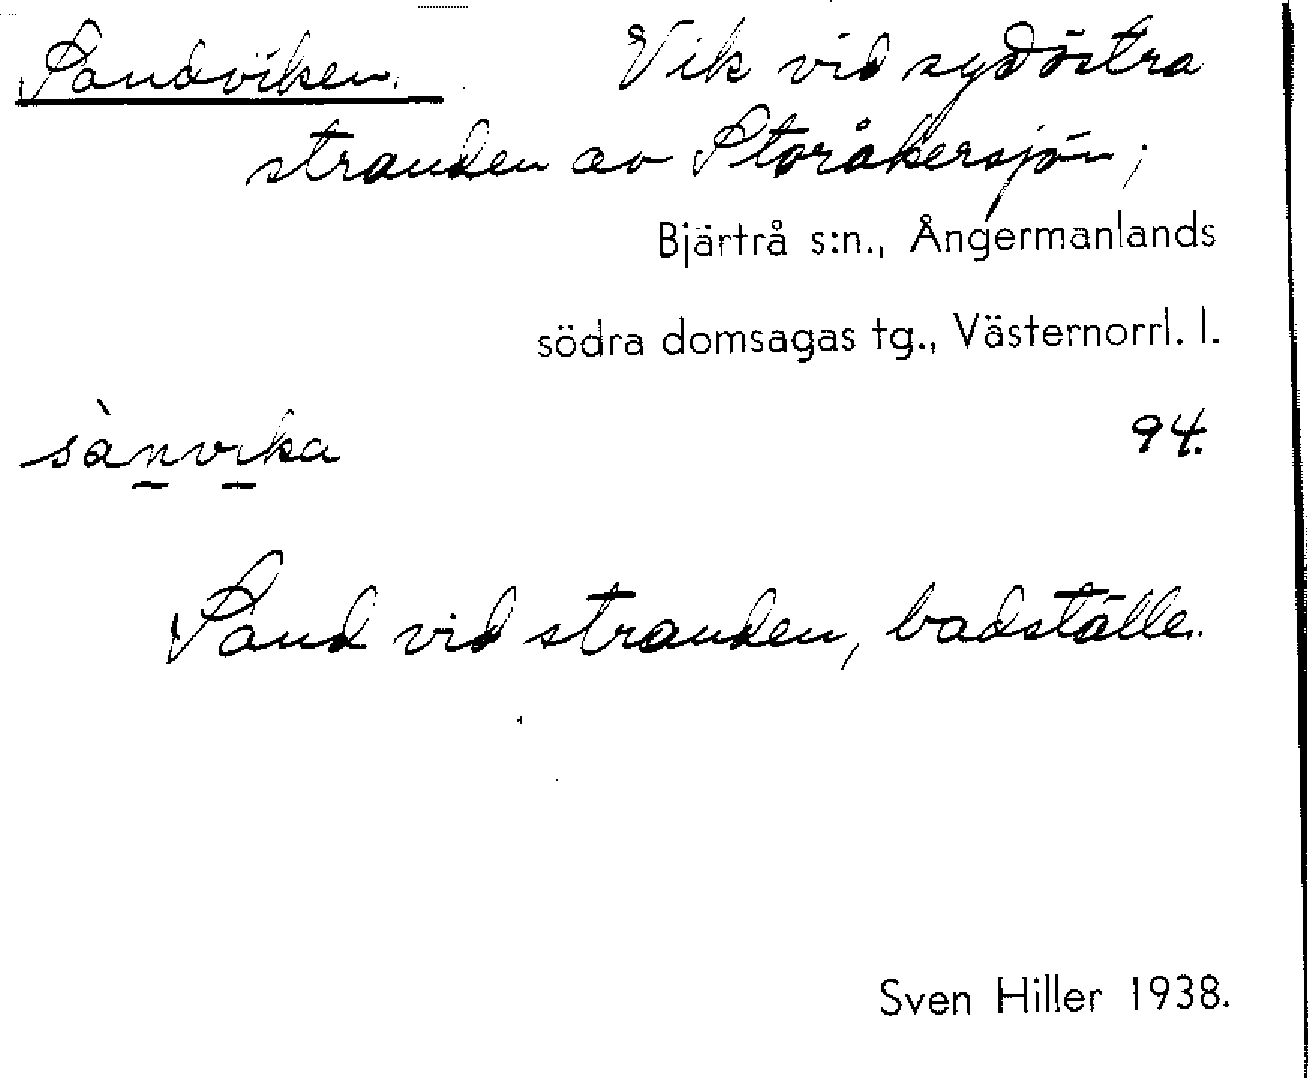 Sandviken. Vik vid sydöstra
stranden av Storåkersjön;
Bjärtrå s:n., Ångermanlands
södra domsagas tg., Västernorrl. l.
sànvika 94.
Sand vid stranden, badställe.
Sven Hiller 1938.